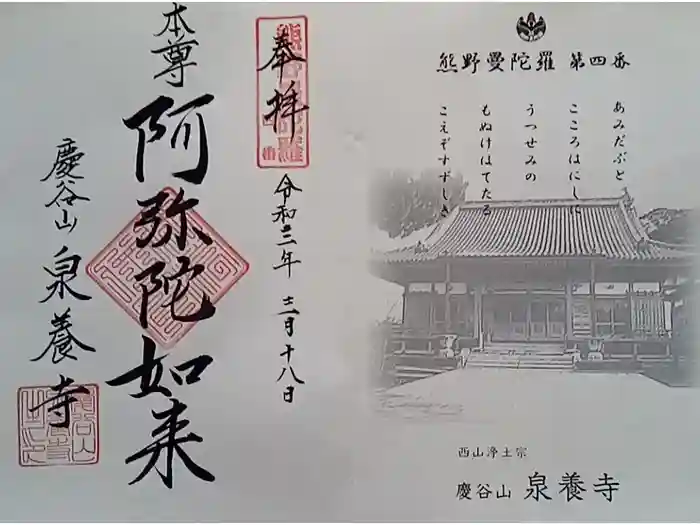 熊野曼陀羅 第四番
あみだぶと
こころはにしに
うつせみの
もぬけはてたる
こえぞすずしき
西山浄土宗
慶谷山 泉養寺
奉拝
令和三年 十二月十八日
本尊
阿弥陀如来
慶谷山 泉養寺